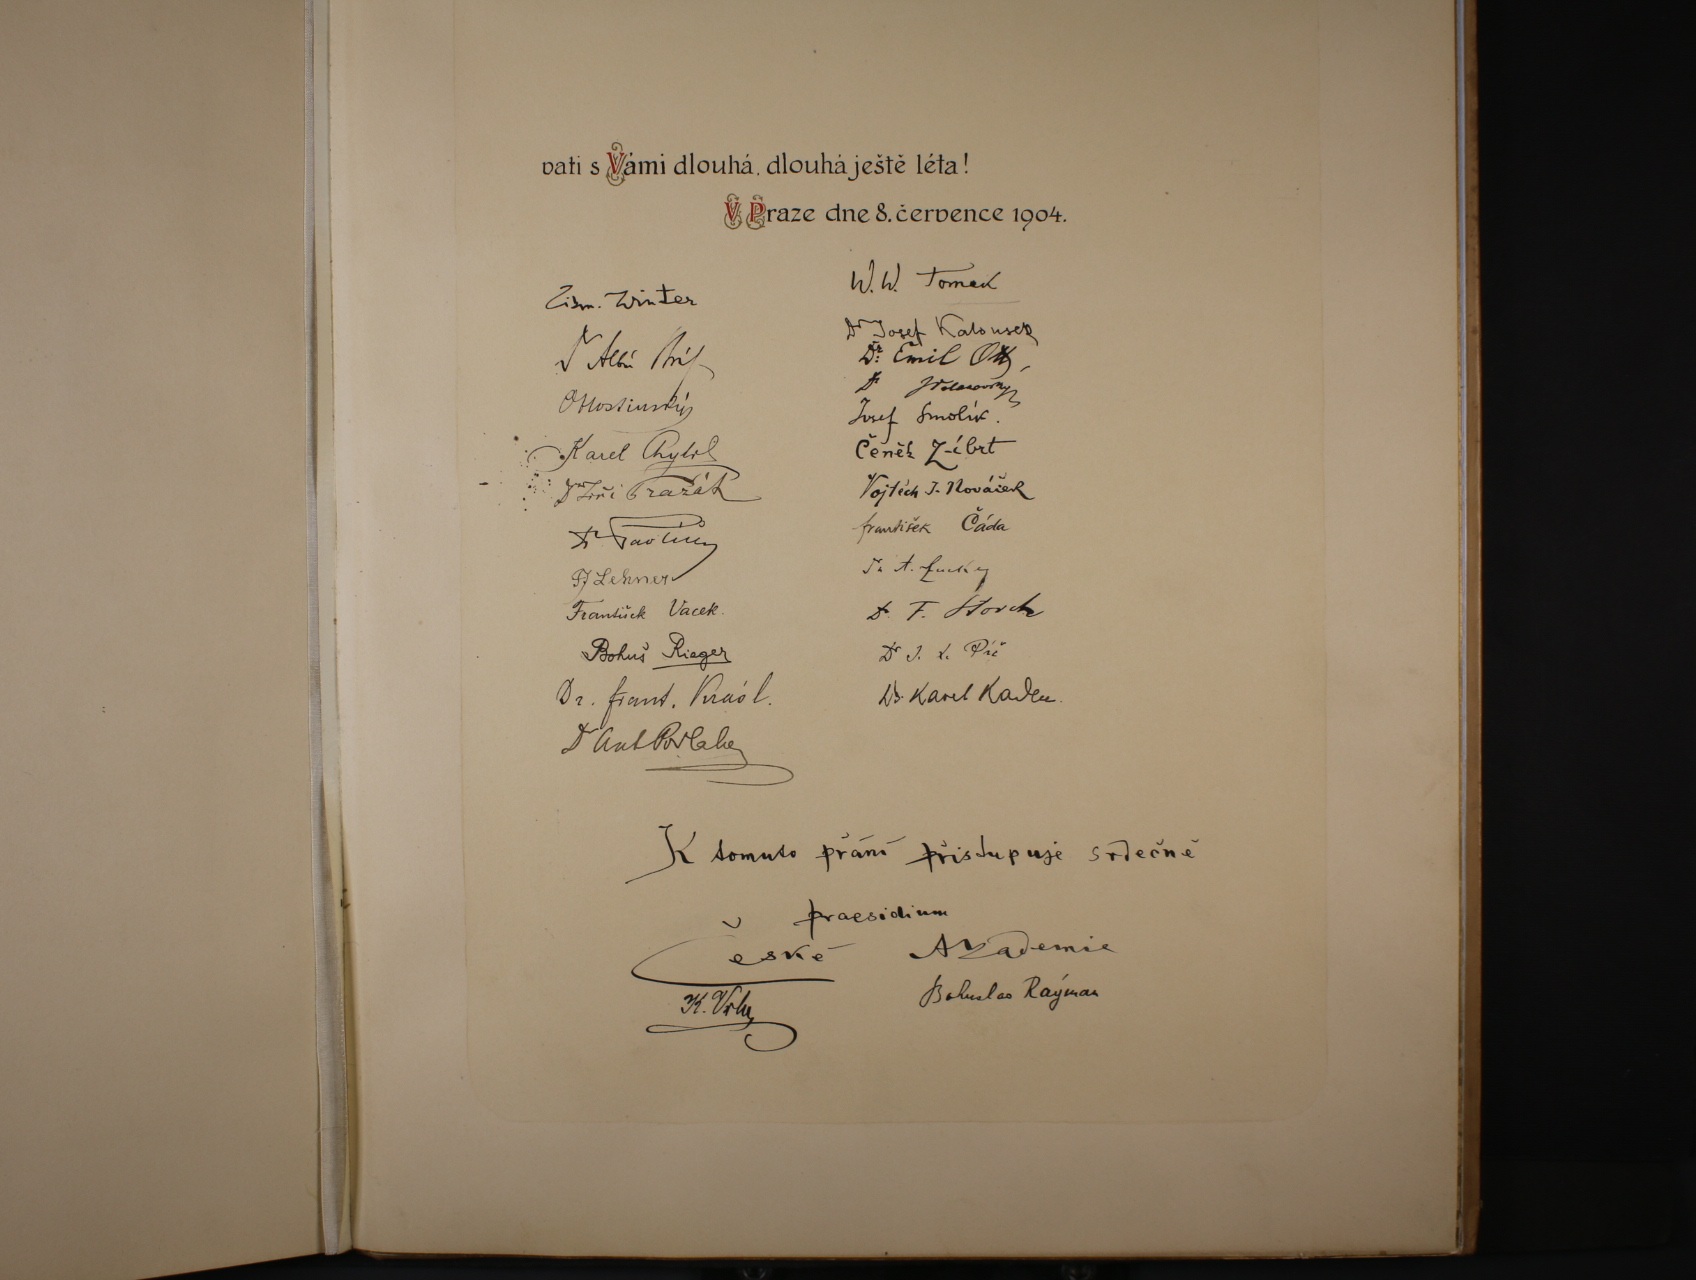 vati s Vámi dlouhá, dlouhá ještě léta!
V Praze dne 8. července 1904.
W. W. Tomek
Zikm. Winter
Dr Josef Kalousek
Dr Albín Bráf
Dr. Emil Ott,
Dr
O Hostinský
Josef Smolík.
Karel Chytil
Čeněk Zíbrt
Dr Jiří Pražák
Vojtěch J. Nováček
František Čáda
Dr Pavlíček
Dr A.
F J Lehner
František Vacek.
Dr F. Storch
Bohuš Rieger
Dr J. L. Píč
Dr. Frant. Krásl.
Dr Karel Kadlec.
Dr Ant Podlaha
K tomuto přání přistupuje srdečně
praesidium
České Akademie
K. Vrba
Bohuslav Raýman